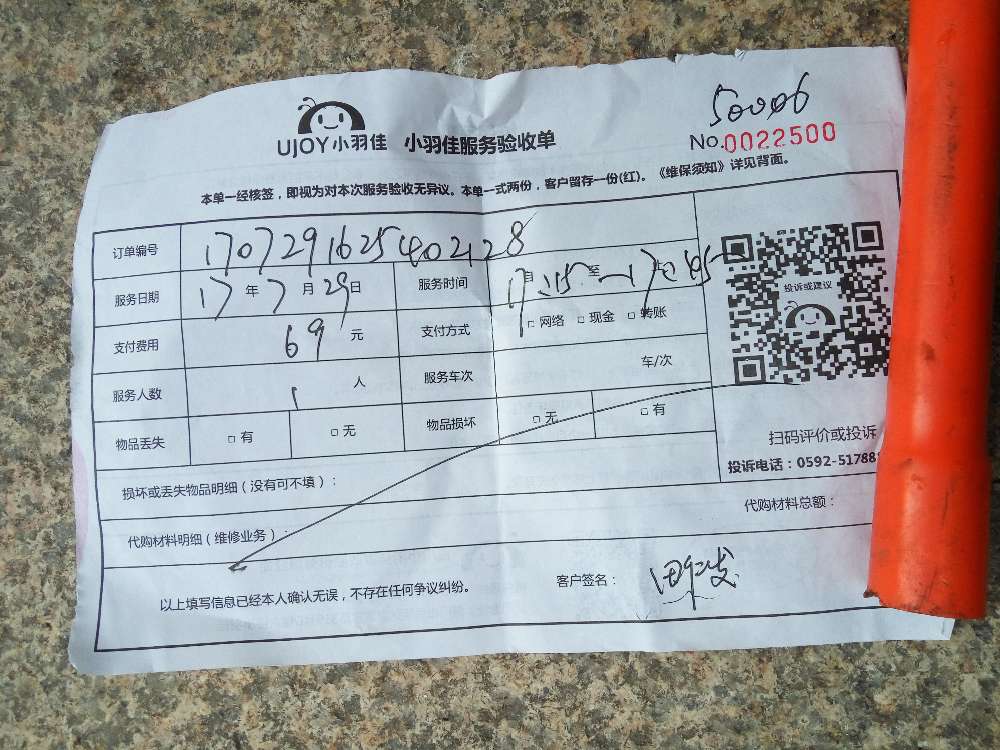 50006
UJOY小羽佳 小羽佳服务验收单 No.0022500
本单一经核签，即视为对本次服务验收无异议。本单一式两份，客户留存一份(红)。《维保须知》详见背面。
订单编号 1707291625402128
服务日期 17年7月29日 服务时间 月 至
支付费用 69元 支付方式 □网络 □现金 □转账
服务人数 1人 服务车次 车/次
物品丢失 □有 □无 物品损坏 □无 □有
损坏或丢失物品明细（没有可不填）：
代购材料明细（维修业务）： 代购材料总额：
以上填写信息已经本人确认无误，不存在任何争议纠纷。 客户签名：
投诉或建议
扫码评价或投诉
投诉电话：0592-51788